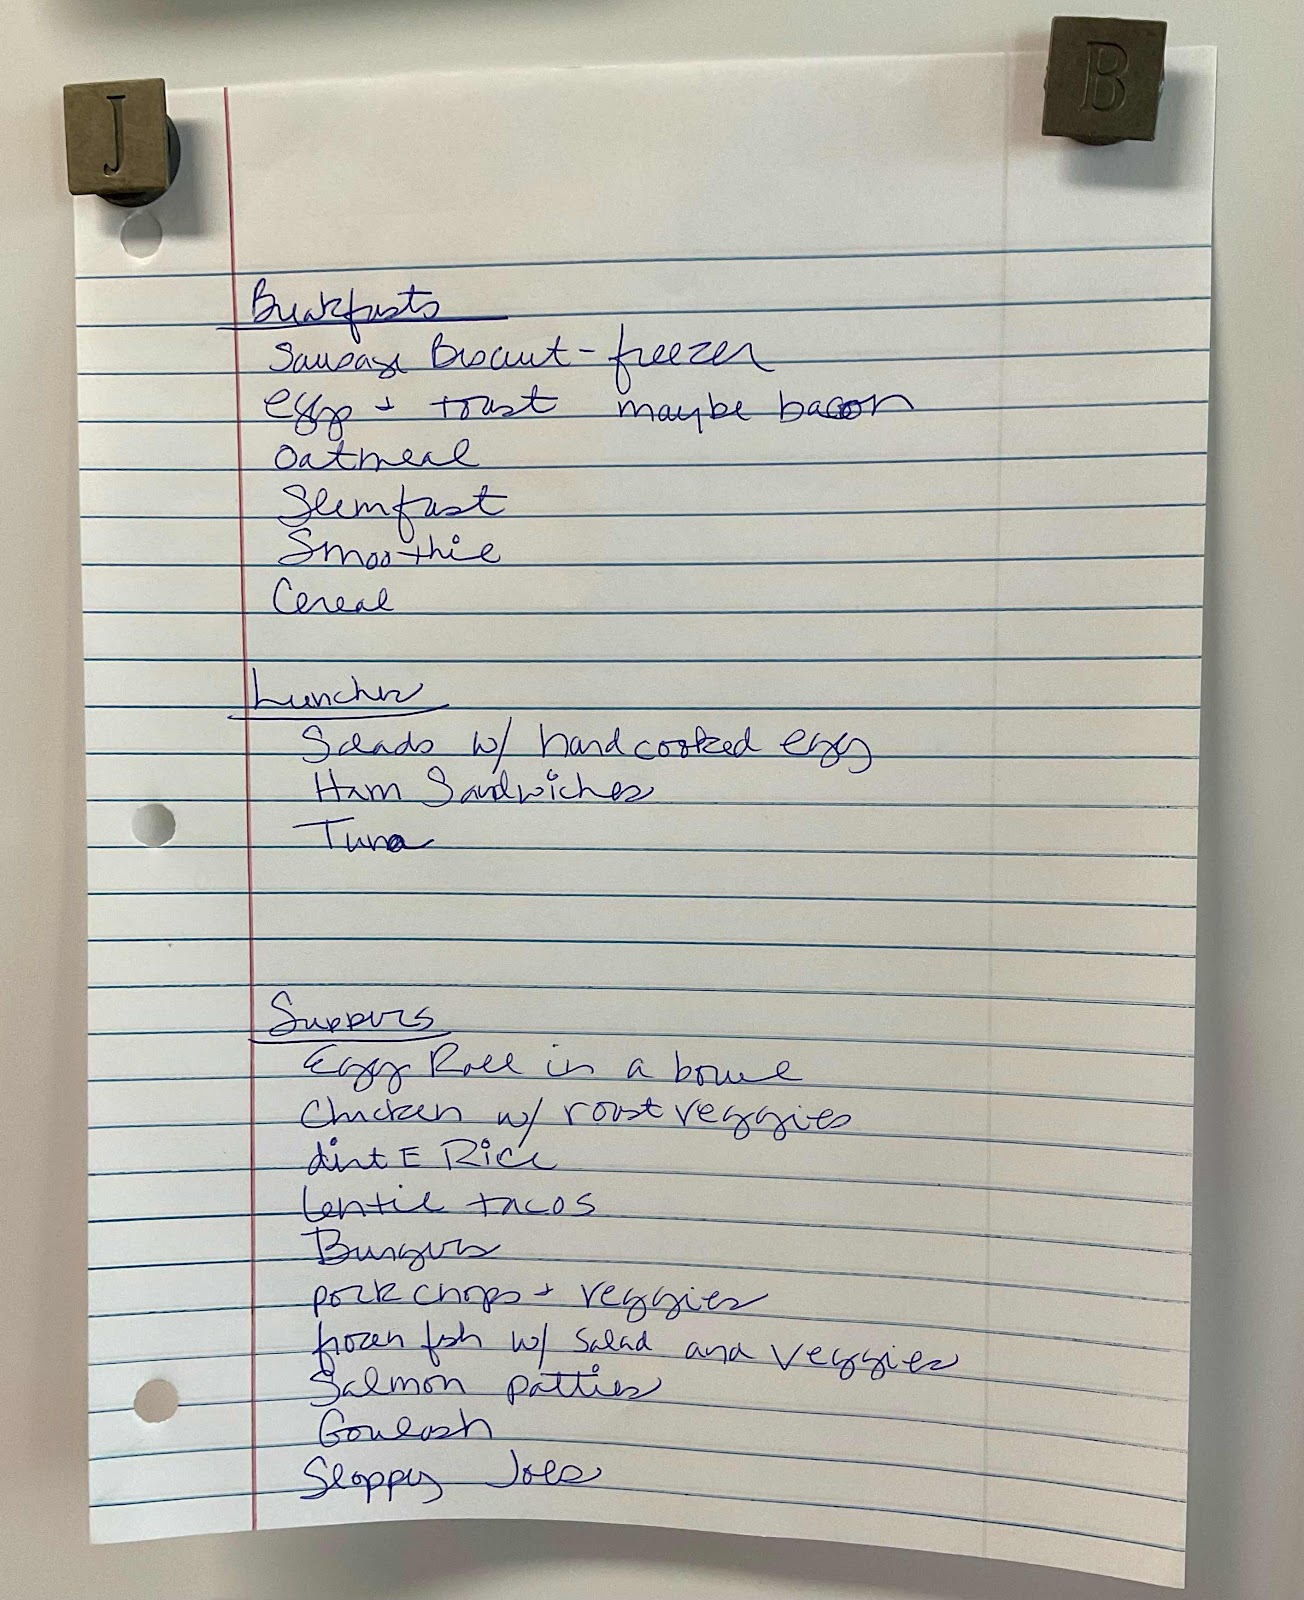 J
B
Breakfasts
Sausage Biscuit - freezer
eggs + toast maybe bacon
Oatmeal
Slimfast
Smoothie
Cereal
Lunches
Salads w/ hard cooked egg
Ham Sandwiches
Tuna
Suppers
Egg Roll in a bowl
Chicken w/ roast veggies
dirt E Rice
lentil tacos
Burgers
pork chops + veggies
frozen fish w/ salad and veggies
Salmon patties
Goulash
Sloppy Joes